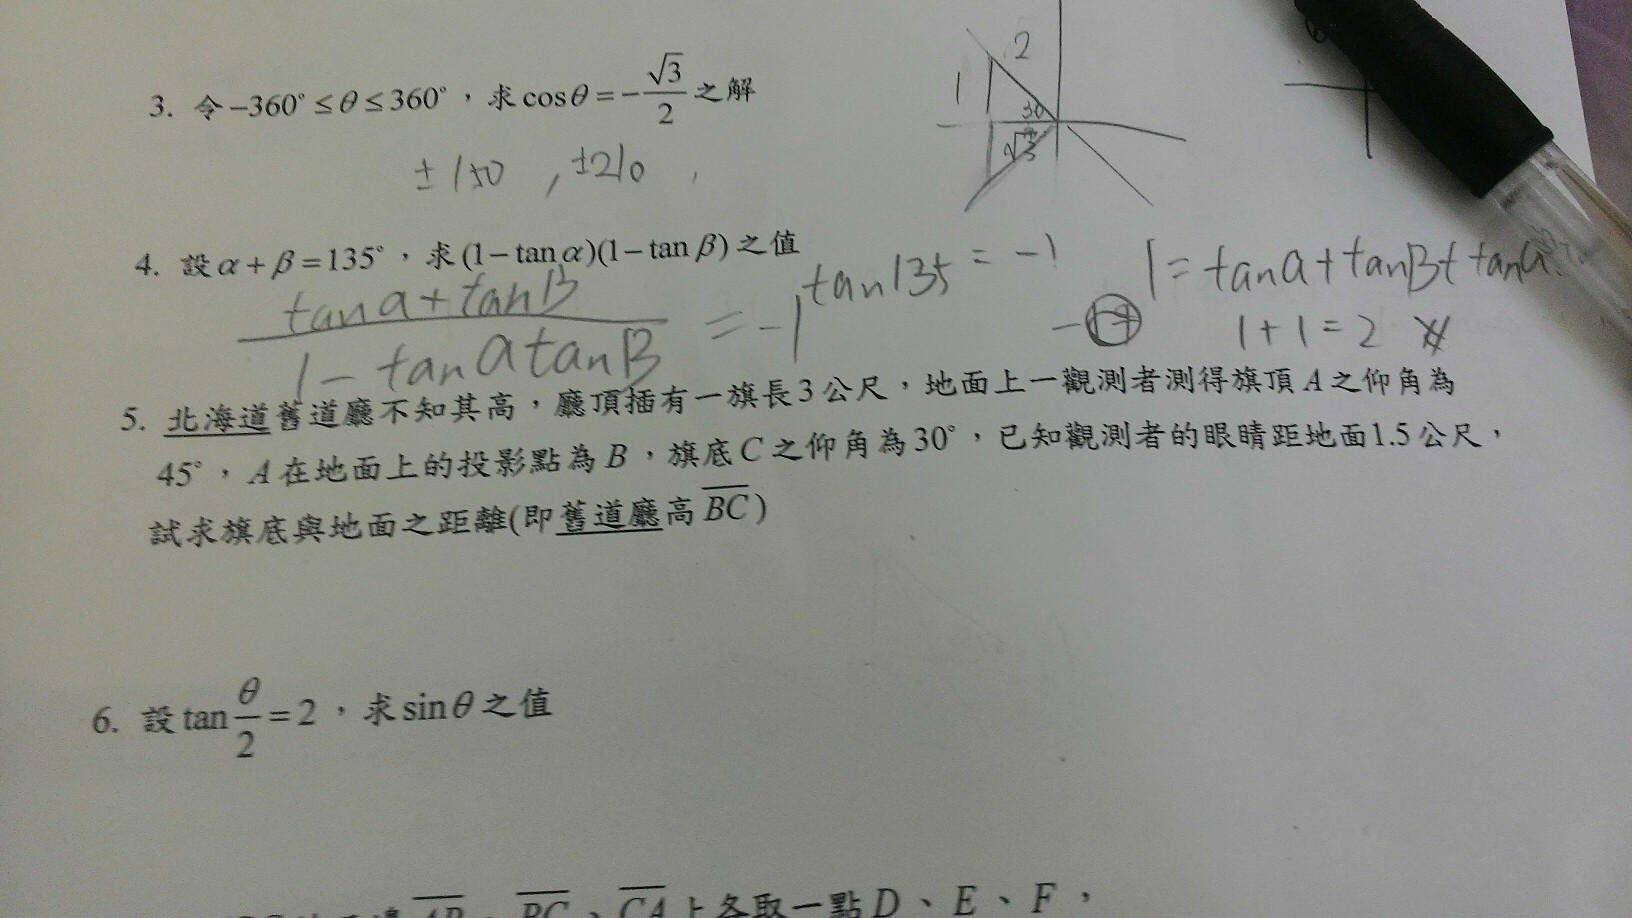 3. 令 -360° ≤ θ ≤ 360°，求 cosθ = -√3/2 之解
± 150 , ±210
2
1
30
√3
4. 設 α + β = 135°，求 (1 - tan α)(1 - tan β) 之值
tan α + tan β / 1 - tan α tan β = -1
tan 135 = -1
1 = tan α + tan β + tan α
1 + 1 = 2
5. 北海道舊道廳不知其高，廳頂插有一旗長3公尺，地面上一觀測者測得旗頂 A 之仰角為
45°，A 在地面上的投影點為 B，旗底 C 之仰角為 30°，已知觀測者的眼睛距地面1.5公尺，
試求旗底與地面之距離(即舊道廳高 BC)
6. 設 tan θ/2 = 2，求 sinθ 之值
AB、BC、CA 上各取一點 D、E、F，